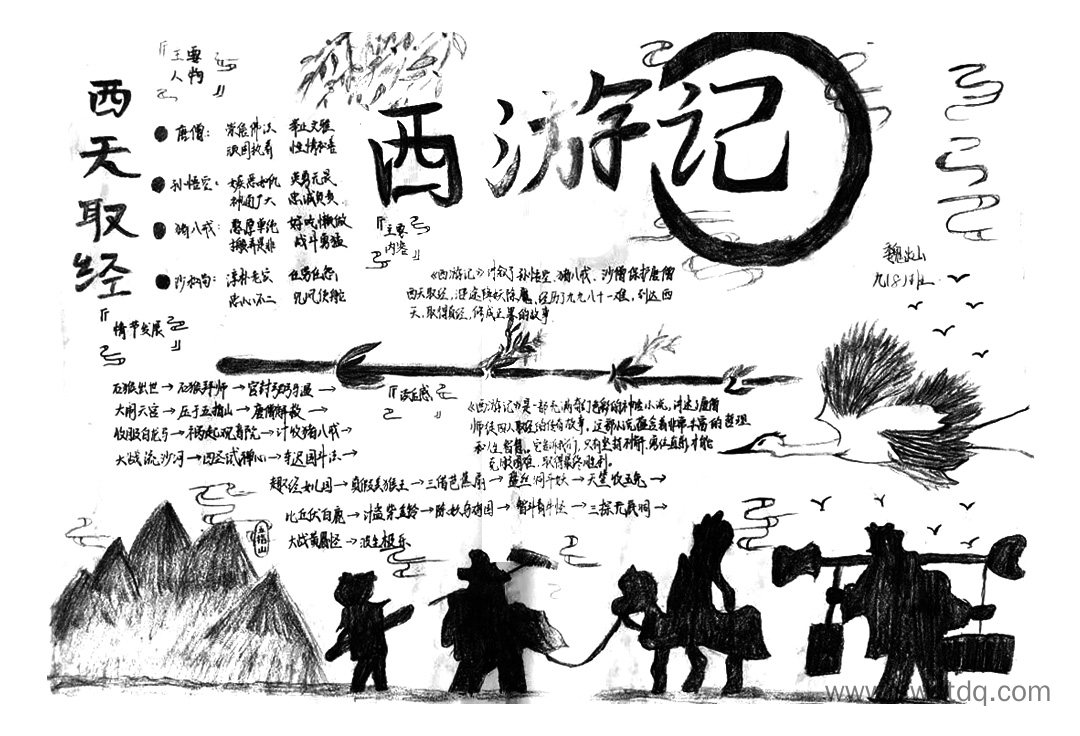 西游记
西天取经
主要
人物
唐僧：崇信佛法 举止文雅
性情和善
孙悟空：嫉恶如仇 英勇无畏
神通广大 忠诚
猪八戒：憨厚单纯 好吃懒做
搬弄是非 战斗勇猛
沙和尚：淳朴老实 任劳任怨
忠心不二
主要
内容
《西游记》讲叙了孙悟空、猪八戒、沙僧保护唐僧
西天取经，沿途降妖除魔，经历了九九八十一难，到达西
天，取得真经，修成正果的故事
情节发展
石猴出世→石猴拜师→官封弼马温→
大闹天宫→压于五指山→唐僧解救→
收服白龙马→祸起观音院→计收猪八戒→
大战流沙河→四圣试禅心→车迟国斗法→
趣经女儿国→真假美猴王→三借芭蕉扇→→天竺收玉兔→
比丘伏白鹿→计盗紫金铃→除妖乌鸡国→智斗青牛怪→三探无底洞→
大战黄眉怪→波生极乐
读后感
《西游记》是一部充满奇幻色彩的神魔小说，讲述了唐僧
师徒四人取经的传奇故事。这部小说蕴含着非常丰富的哲理
和人生智慧。它告诉我们，只有坚持不懈、勇往直前才能
克服困难，取得最终胜利。
五指山
九(8)班